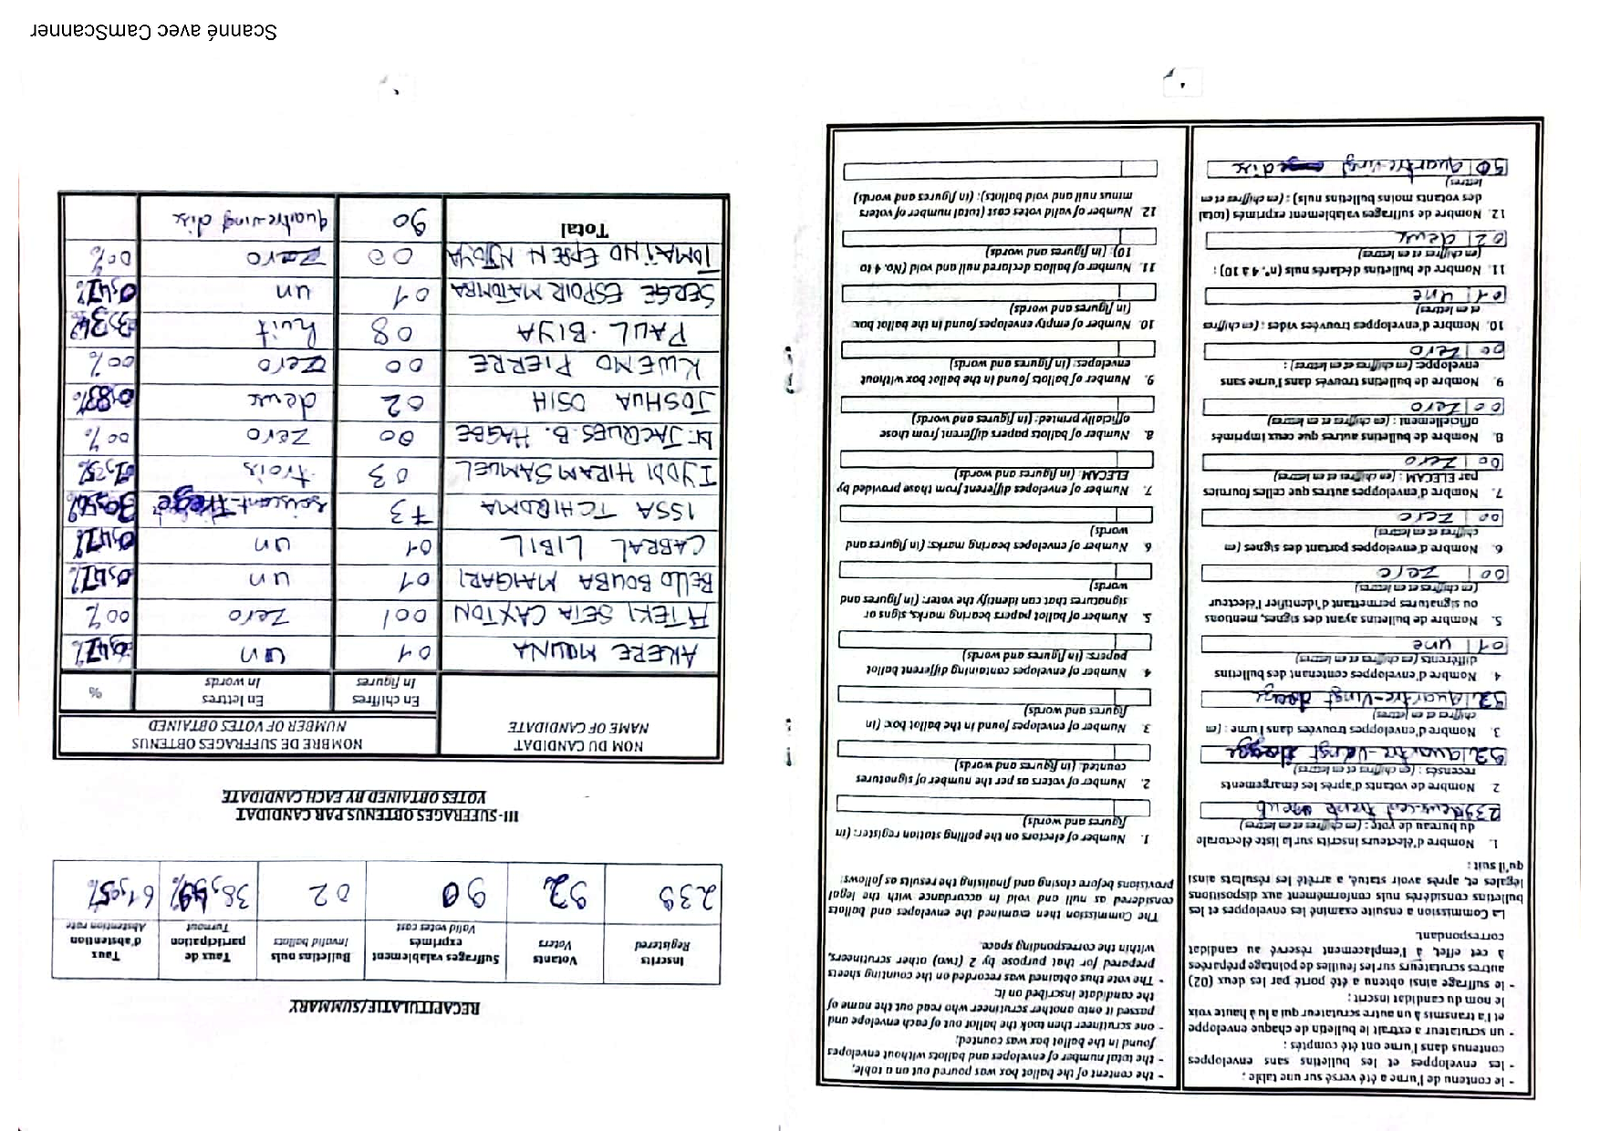 - le contenu de l'urne a été versé sur une table ;
- les enveloppes et les bulletins sans enveloppes contenus dans l'urne ont été comptés ;
- un scrutateur a extrait le bulletin de chaque enveloppe et l'a transmis à un autre scrutateur qui a lu à haute voix le nom du candidat inscrit ;
- le suffrage ainsi obtenu a été porté par les deux (02) autres scrutateurs sur les feuilles de pointage préparées à cet effet, à l'emplacement réservé au candidat correspondant.
La Commission a ensuite examiné les enveloppes et les bulletins considérés nuls conformément aux dispositions légales et, après avoir statué, a arrêté les résultats ainsi qu'il suit :
1. Nombre d'électeurs inscrits sur la liste électorale du bureau de vote : (en chiffres et en lettres)
239 deux-cent trente neuf
2 Nombre de votants d'après les émargements recensés : (en chiffres et en lettres)
92 quatre-vingt douze
3. Nombre d'enveloppes trouvées dans l'urne : (en chiffres et en lettres)
92 quatre-vingt douze
4 Nombre d'enveloppes contenant des bulletins différents (en chiffres et en lettres)
01 une
5. Nombre de bulletins ayant des signes, mentions ou signatures permettant d'identifier l'électeur (en chiffres et en lettres)
00 zero
6. Nombre d'enveloppes portant des signes (en chiffres et en lettres)
00 zero
7. Nombre d'enveloppes autres que celles fournies par ELECAM : (en chiffres et en lettres)
00 zero
8. Nombre de bulletins autres que ceux imprimés officiellement : (en chiffres et en lettres)
00 zero
9. Nombre de bulletins trouvés dans l'urne sans enveloppe: (en chiffres et en lettres) :
00 zero
10. Nombre d'enveloppes trouvées vides : (en chiffres et en lettres)
01 une
11. Nombre de bulletins déclarés nuls (n°. 4 à 10) : (en chiffres et en lettres)
02 deux
12. Nombre de suffrages valablement exprimés (total des votants moins bulletins nuls) : (en chiffres et en lettres)
90 quatre-vingt dix
- the content of the ballot box was poured out on a table;
- the total number of envelopes and ballots without envelopes found in the ballot box was counted;
- one scrutineer then took the ballot out of each envelope and passed it onto another scrutineer who read out the name of the candidate inscribed on it;
- The vote thus obtained was recorded on the counting sheets prepared for that purpose by 2 (two) other scrutineers, within the corresponding space.
The Commission then examined the envelopes and ballots considered as null and void in accordance with the legal provisions before closing and finalising the results as follows:
1. Number of electors on the polling station register: (in figures and words)
2. Number of voters as per the number of signatures counted. (in figures and words)
3 Number of envelopes found in the ballot box: (in figures and words)
4 Number of envelopes containing different ballot papers: (in figures and words)
5. Number of ballot papers bearing marks, signs or signatures that can identify the voter: (in figures and words)
6 Number of envelopes bearing marks: (in figures and words)
7. Number of envelopes different from those provided by ELECAM. (in figures and words)
8. Number of ballots papers different from those officially printed: (in figures and words)
9. Number of ballots found in the ballot box without envelopes: (in figures and words)
10. Number of empty envelopes found in the ballot box: (in figures and words)
11. Number of ballots declared null and void (No. 4 to 10): (in figures and words)
12. Number of valid votes cast (total number of voters minus null and void ballots): (in figures and words)
RECAPITULATIF/SUMMARY
Inscrits Registered | Votants Voters | Suffrages valablement exprimés Valid votes cast | Bulletins nuls Invalid ballots | Taux de participation Turnout | Taux d'abstention Abstention rate
239 92 90 02 38,49% 61,51%
III- SUFFRAGES OBTENUS PAR CANDIDAT
VOTES OBTAINED BY EACH CANDIDATE
NOM DU CANDIDAT NAME OF CANDIDATE
NOMBRE DE SUFFRAGES OBTENUS
NUMBER OF VOTES OBTAINED
En chiffres In figures | En lettres In words | %
AKERE MOUNA 01 un 0,41%
ATEKI SETA CAXTON 001 zero 00%
BELLO BOUBA MAIGARI 01 un 0,41%
CABRAL LIBII 01 un 0,41%
ISSA TCHIROMA 73 soixant-treize 30,5%
IYODI HIRAM SAMUEL 03 trois
Dr. JACQUES B. HAGBE 00 zero 00%
JOSHUA OSIH 02 deux 0,83%
KWEMO PIERRE 00 zero 00%
PAUL BIYA 08 huit 3,34%
SERGE ESPOIR MATOMBA 01 un 0,41%
TOMAÏNO EPSEN NJOYA 00 zero 00%
Total 90 quatre-ving dix
Scanné avec CamScanner